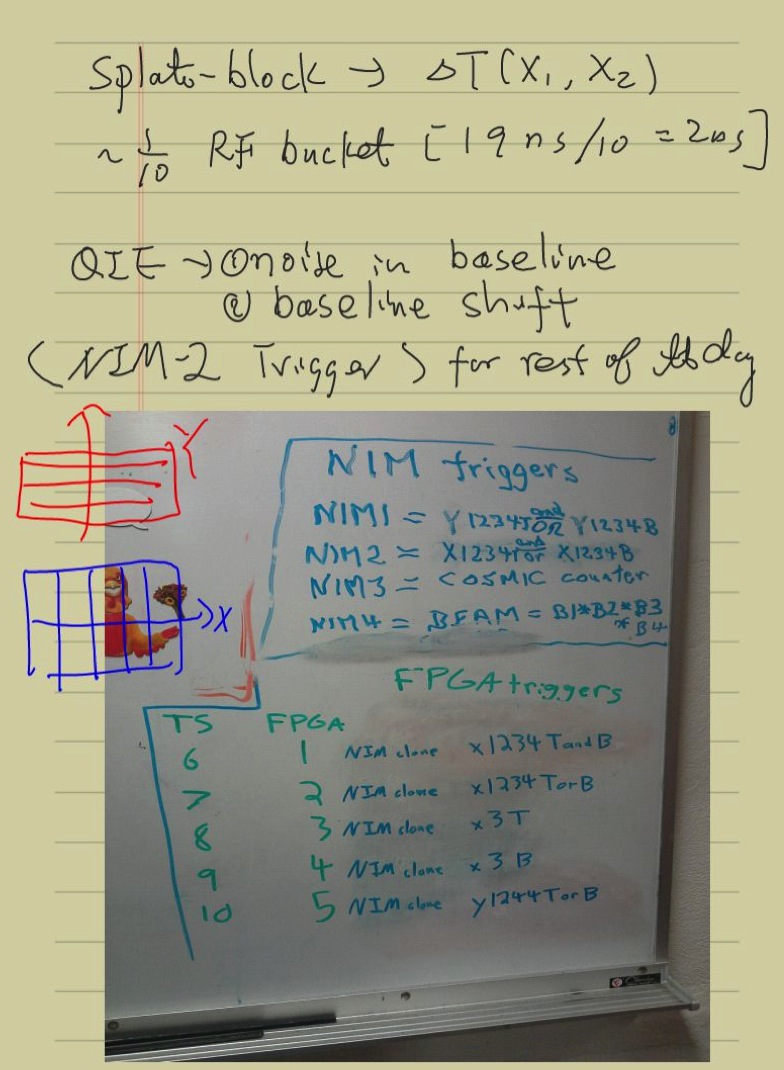 Splat-block → ΔT(X₁, X₂)
~ 1/10 RF bucket [19 ns/10 = 2ns]
QIE → ① noise in baseline
② baseline shift
(NIM-2 Trigger) for rest of day
Y
X
NIM triggers
NIM1 = Y1234T and OR Y1234B
NIM2 = X1234T and or X1234B
NIM3 = COSMIC counter
NIM4 = BEAM = B1*B2*B3
* B4
FPGA triggers
TS FPGA
6 1 NIM clone x1234 TandB
7 2 NIM clone x1234 TorB
8 3 NIM clone x3T
9 4 NIM clone x3B
10 5 NIM clone y1244 TorB